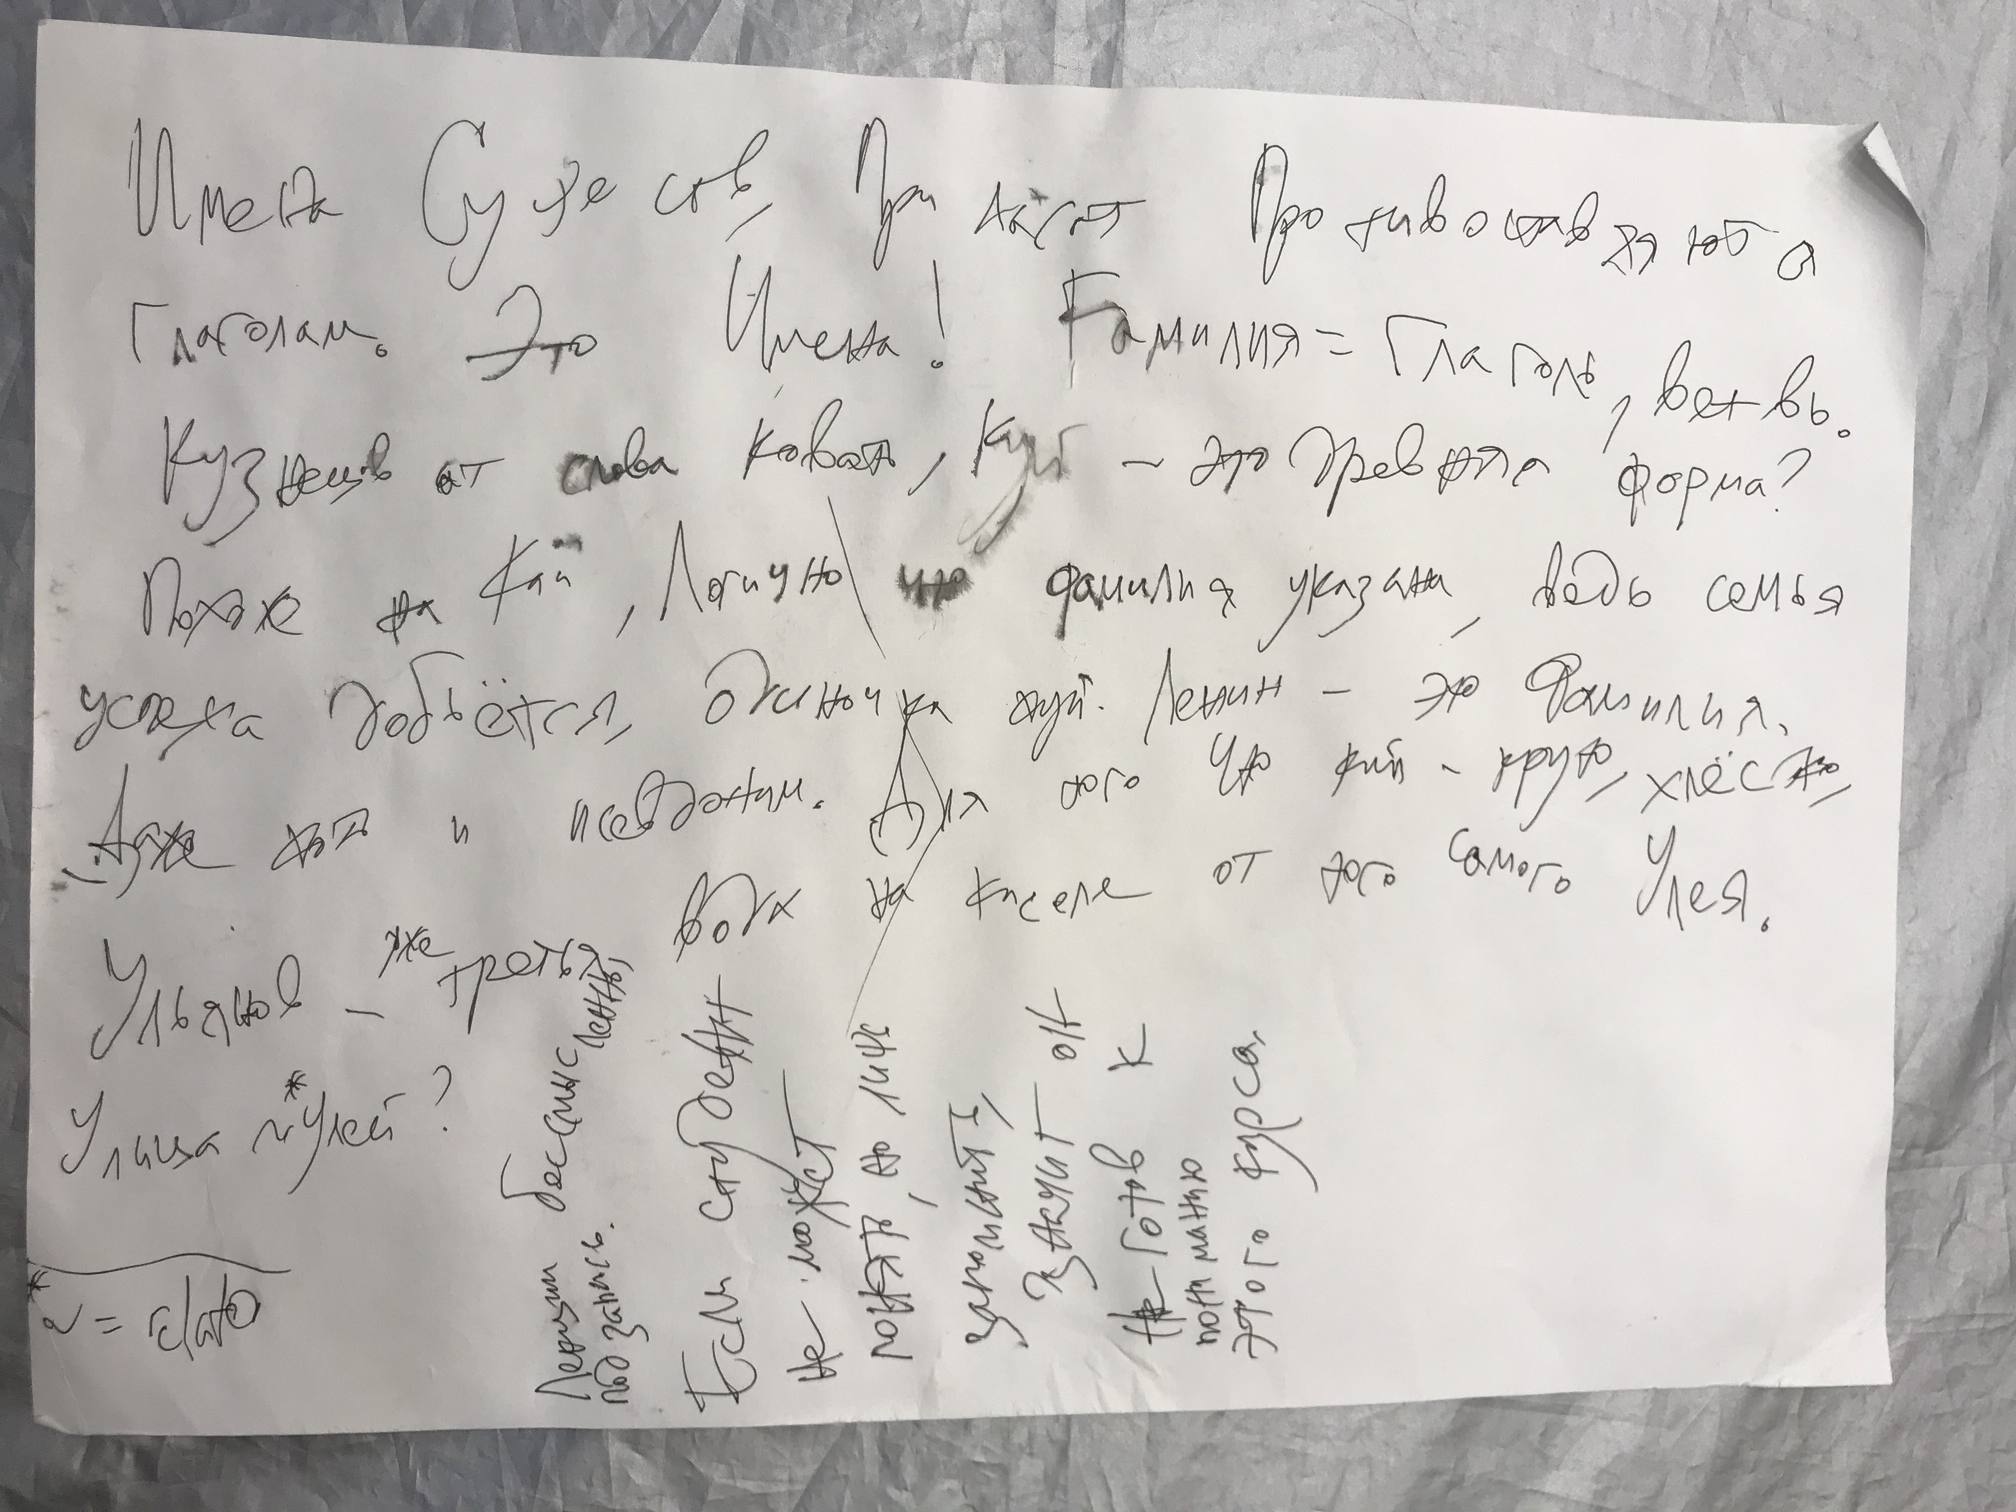 Имена Сущеcтв, Прилагат Противоставляются
Глаголам. Это Имена! Фамилия = Глаголь, ветвь.
Кузнецов от слова ковать, куй – это древняя форма?
Похоже на Кай, Логично что фамилия указана, ведь семья
успеха добьётся, одиночка хуй. Ленин – это Фамилия.
Даже хоть и псевдоним. Для того что кий – круто, хлёстко,
Ульянов – же третья вода на киселе от того самого Улея.
Улица ~* Улей?
* ~ = ело
Лекции бессмысленны,
под запись.
Если студент
не может
понять, но
запомнит,
значит он
не готов к
пониманию
этого курса.